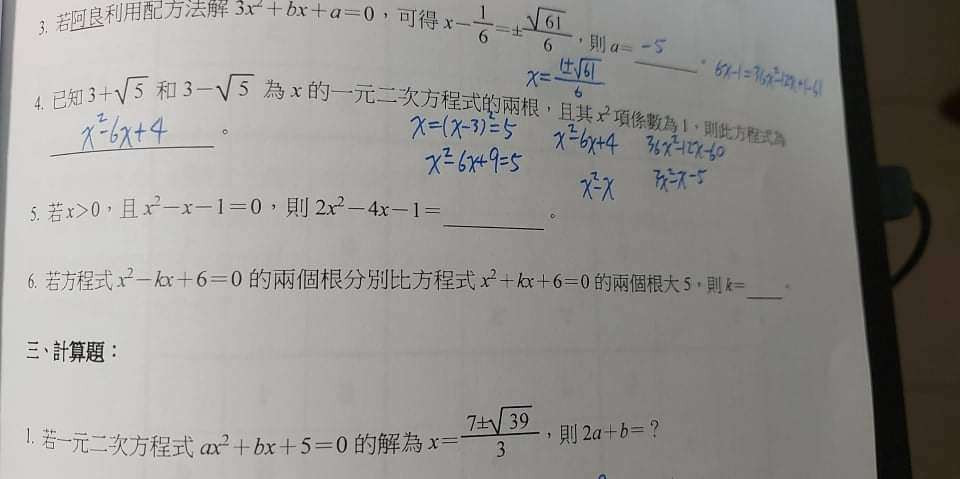 3. 若阿良利用配方法解 3x²+bx+a=0，可得 x−1/6=±√61/6，則 a= -5 。
6x-1=36x²-12x+1-61
x=(1±√61)/6
4. 已知 3+√5 和 3−√5 為 x 的一元二次方程式的兩根，且其 x² 項係數為 1，則此方程式為
x²-6x+4 。
x=(x-3)²=5 x²-6x+4 36x²-12x-60
x²-6x+9=5 x²-x 3x²-x-5
5. 若 x>0，且 x²−x−1=0，則 2x²−4x−1=______。
6. 若方程式 x²−kx+6=0 的兩個根分別比方程式 x²+kx+6=0 的兩個根大 5，則 k=____。
三、計算題：
1. 若一元二次方程式 ax²+bx+5=0 的解為 x=(7±√39)/3，則 2a+b=？